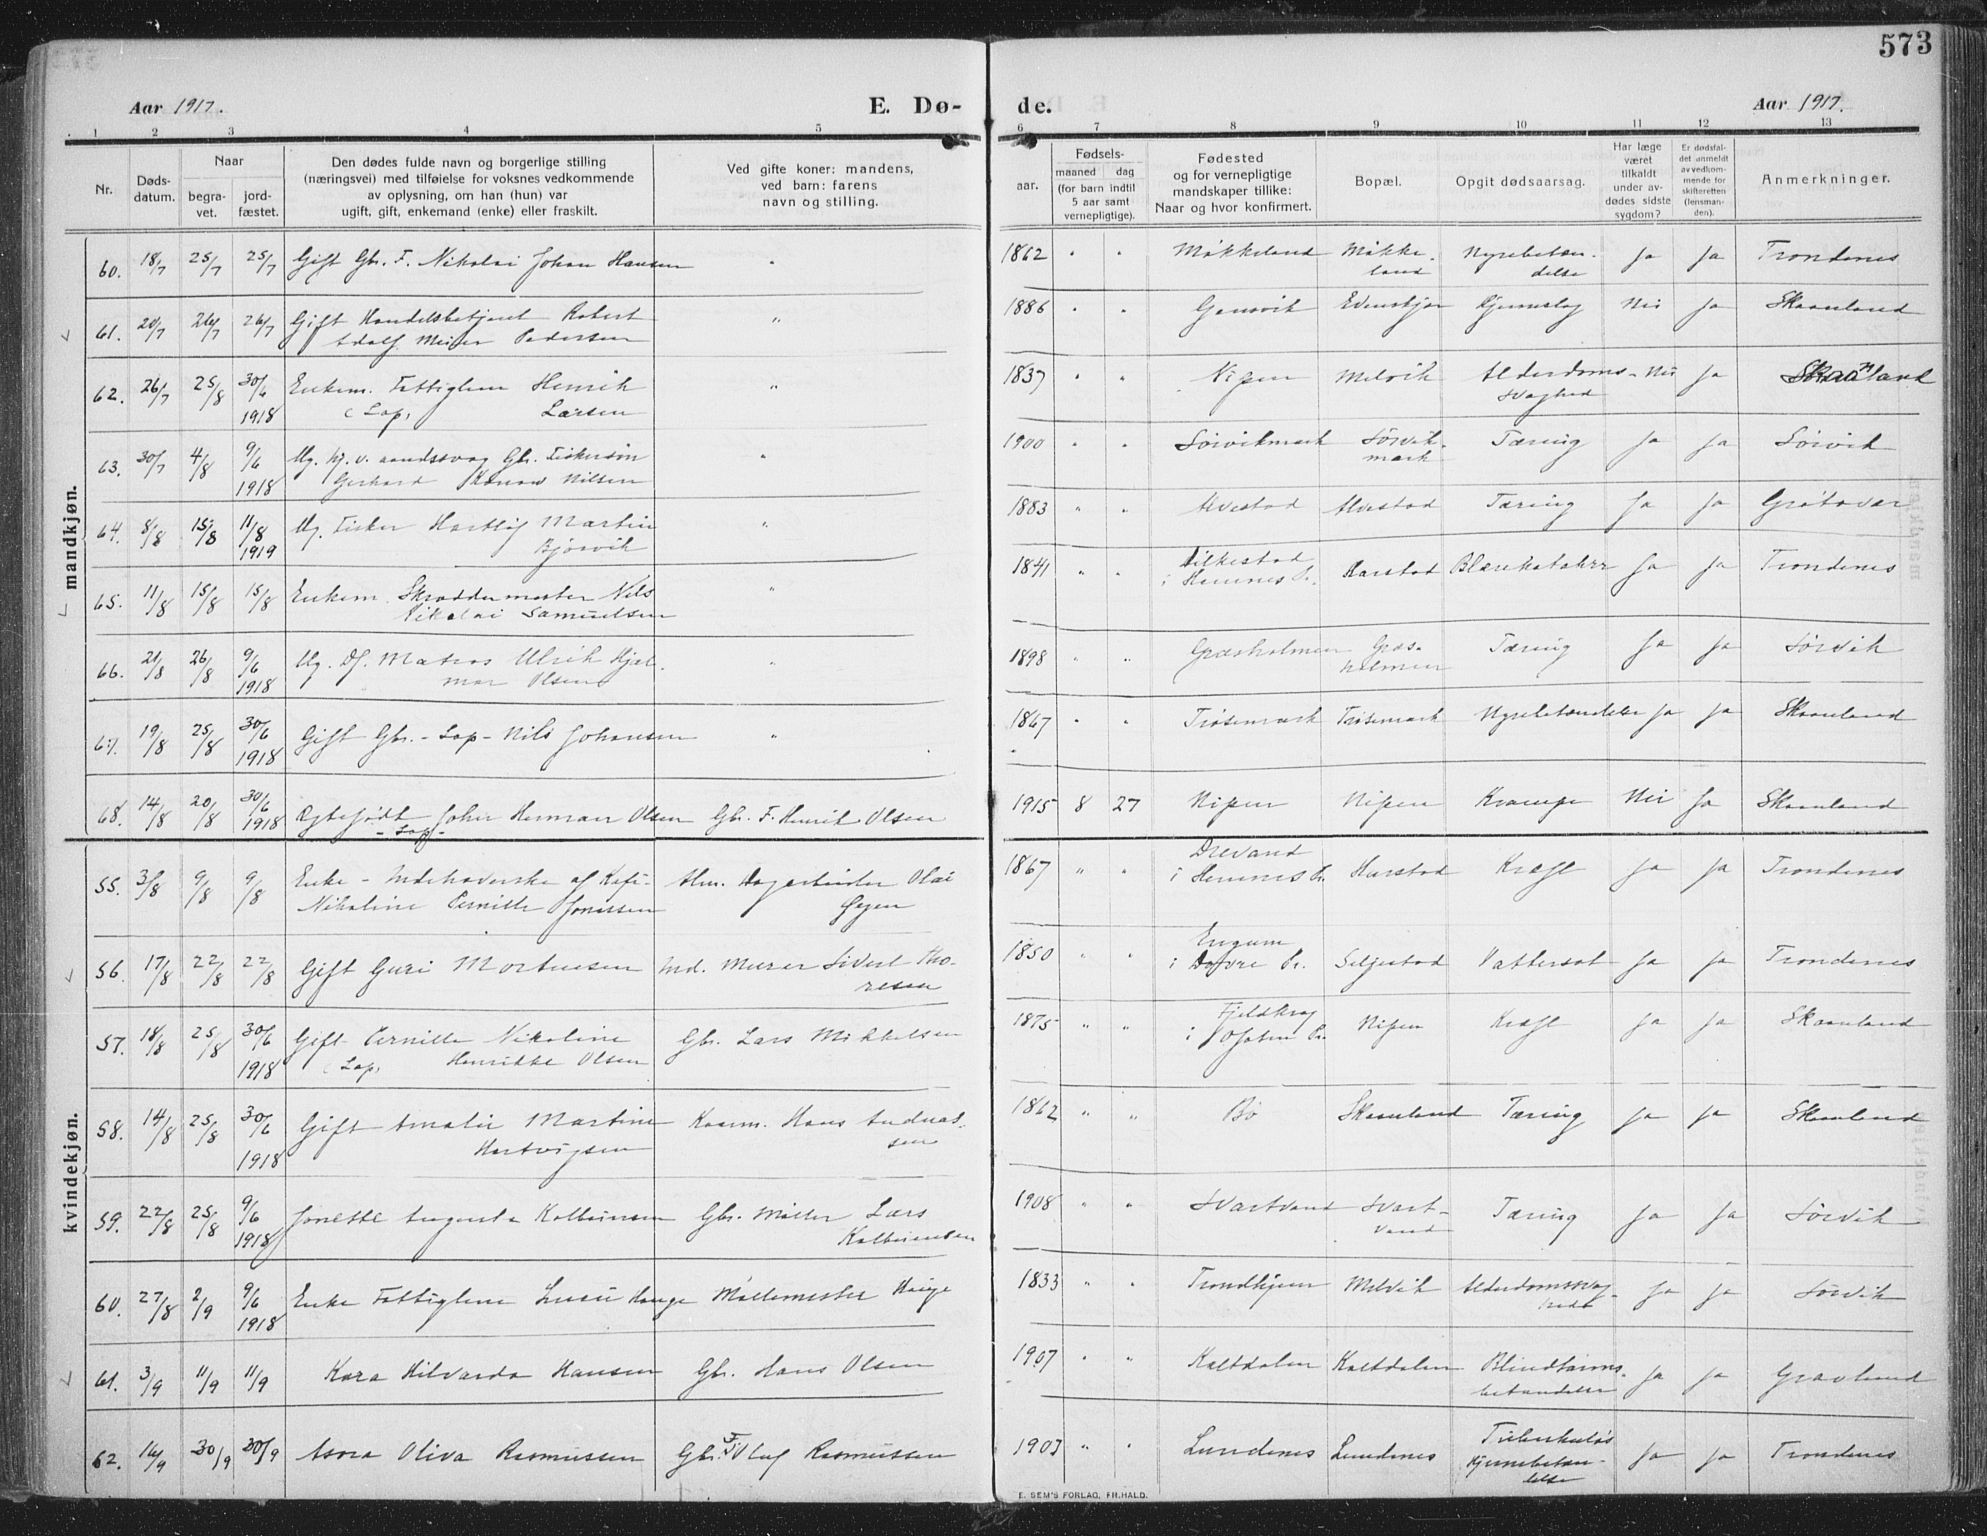 573
Aar 1917.
E. Dø-
de.
Aar 1917.
1 2 3 4 5 6 7 8 9 10 11 12 13
Nr.
Døds-
datum.
Naar
begra-
vet.
jord-
fæstet.
Den dødes fulde navn og borgerlige stilling
(næringsvei) med tilføielse for voksnes vedkommende
av oplysning, om han (hun) var
ugift, gift, enkemand (enke) eller fraskilt.
Ved gifte koner: mandens,
ved barn: farens
navn og stilling.
Fødsels-
aar.
maaned dag
(for barn indtil
5 aar samt
vernepligtige).
Fødested
og for vernepligtige
mandskaper tillike:
Naar og hvor konfirmert.
Bopæl.
Opgit dødsaarsag.
Har læge
været
tilkaldt
under av-
dødes sidste
sygdom?
Er dødsfal-
det anmeldt
av vedkom-
mende for
skifteretten
(lensman-
den).
Anmerkninger.
mandkjøn.
60. 18/7 25/7 25/7 Gift Gbr. F. Nikolai Johan Hansen " 1862 " " Møkkeland Møkke-
land Nyrebetæn-
delse Ja Ja Trondenes
61. 20/7 26/7 26/7 Gift Handelsbetjent Robert
Adolf Meier Pedersen " 1886 " " Evenskjær Nei Ja Skaanland
62. 26/7 25/8 30/6
1918 Enkem. Fattiglem Henrik
(Lap) Larsen " 1837 " " Nipen Melvik Alderdoms-
svaghed Nei Ja Skaanland
63. 30/7 4/8 9/6
1918 Ug. hj. v. aandssvag Gbr. Fiskersøn
Gerhard Konow Nilsen " 1900 " " Sørvikmark Sørvik-
mark Tæring Ja Ja Sørvik
64. 8/8 15/8 11/8
1919 Ug. Fisker Hartløf Martin
Bjørvik " 1883 " " Alvestad Alvestad Tæring Ja Ja Grøtavær
65. 11/8 15/8 15/8 Enkem. Skræddermester Nils
Nikolai Samuelsen " 1841 " " Vilkestad
i Hemnes Pr. Harstad Blærekatahrr Ja Ja Trondenes
66. 21/8 26/8 9/6
1918 Ug. Df. Matros Ulrik Hjal-
mar Olsen " 1898 " " Græsholmen Græs-
holmen Tæring Ja Ja Sørvik
67. 19/8 25/8 30/6
1918 Gift Gbr. - Lap - Nils Johansen " 1867 " " Trøsemark Trøsemark Nyrebetændelse Ja Ja Skaanland
68. 14/8 20/8 30/6
1918 Egtefødt Johan Herman Olsen
- Lap - Gbr. F. Henrik Olsen 1915 8 27 Nipen Nipen Krampe Nei Ja Skaanland
kvindekjøn.
55. 3/8 9/8 9/8 Enke - Indehaverske af Kafe -
Nikoline Pernille Jonassen Hm. Dagarbeider Olai
1867 " " Drevand
i Hemnes Pr. Harstad Kræft Ja Ja Trondenes
56. 17/8 22/8 22/8 Gift Guri Mortensen Ind. Murer Sivert Tho-
resen 1850 " "
i Dovre Pr. Seljestad Vattersot Ja Ja Trondenes
57. 18/8 25/8 30/6
1918 Gift Pernille Nikoline
(Lap) Henrikke Olsen Gbr. Lars Mikkelsen 1875 " "
i Ofoten Pr. Nipen Kræft Ja Ja Skaanland
58. 14/8 25/8 30/6
1918 Gift Amalie Martine
Hartvigsen Kaarm. Hans Andreas-
sen 1862 " " Bø Skaanland Tæring Ja Ja Skaanland
59. 22/8 25/8 9/6
1918 Jonette Augusta Kolbeinsen Gbr. Møller Lars
Kolbeinsen 1908 " " Svartvand Svart-
vand Tæring Ja Ja Sørvik
60. 27/8 2/9 9/6
1918 Enke Fattiglem Hauge Møllemester Hauge 1833 " " Trondhjem Melvik Alderdomssvag-
hed Ja Ja Sørvik
61. 3/9 11/9 11/9 Kara Hilvarda Hansen Gbr. Hans Olsen 1907 " " Kaltdalen Kaltdalen Blindtarms-
betændelse Ja Ja Gravlund
62. 16/9 30/9 30/9 Asora Oliva Rasmussen Gbr. F. Oluf Rasmussen 1907 " " Lundenes Lundenes Tuberkuløs
Hjernebetæn-
delse Ja Ja Trondenes
E. SEM'S FORLAG, FR.HALD.